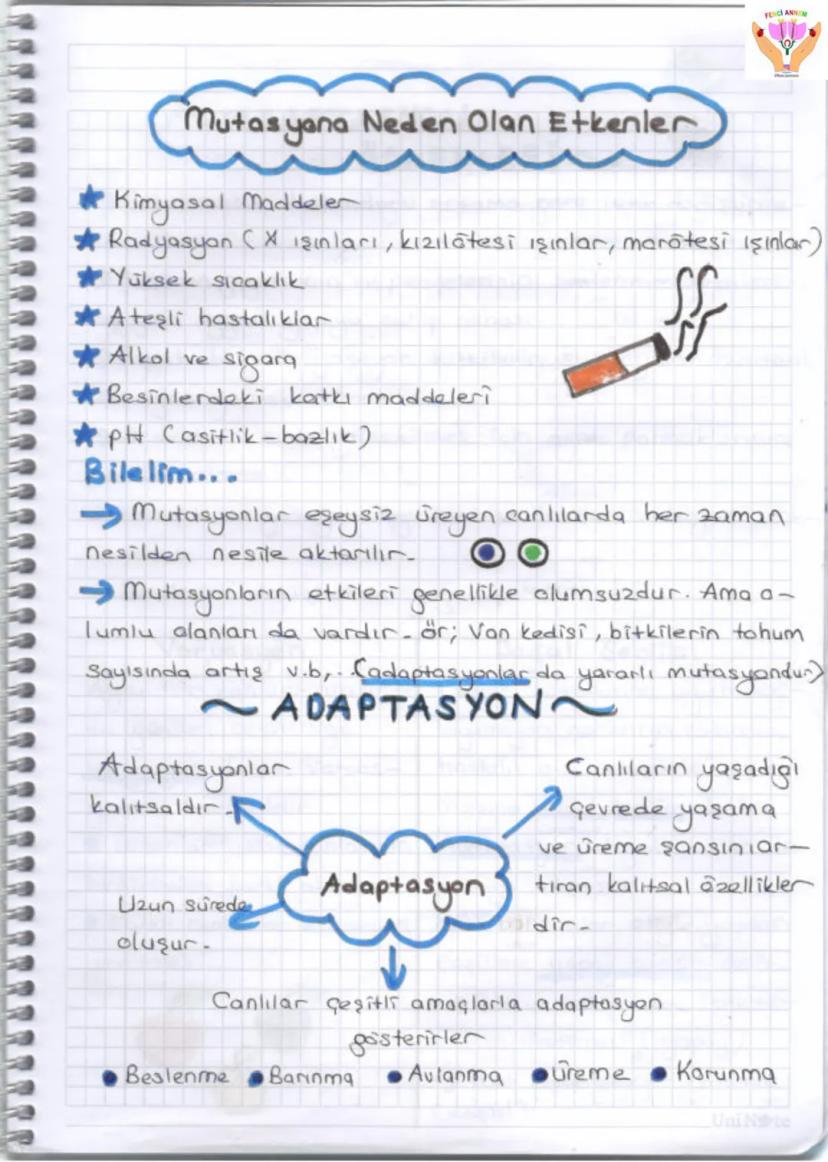 FENCİ ANNEM
Mutasyona Neden Olan Etkenler
Kimyasal Maddeler
Radyasyon (X ışınları, kızılötesi ışınlar, morötesi ışınlar)
Yüksek sıcaklık
Ateşli hastalıklar
Alkol ve sigara
Besinlerdeki katkı maddeleri
pH (asitlik-bazlık)
Bilelim...
→ Mutasyonlar eşeysiz üreyen canlılarda her zaman
nesilden nesile aktarılır.
→ Mutasyonların etkileri genellikle olumsuzdur. Ama o-
lumlu olanları da vardır. ör; Van kedisi, bitkilerin tohum
sayısında artış v.b,.. (adaptasyonlar da yararlı mutasyondur)
~ ADAPTASYON ~
Adaptasyonlar
kalıtsaldır.
Canlıların yaşadığı
çevrede yaşama
ve üreme şansını ar-
tıran kalıtsal özellikler
dir.
Adaptasyon
Uzun sürede
oluşur.
Canlılar çeşitli amaçlarla adaptasyon
gösterirler
Beslenme Barınma Avlanma Üreme Korunma
UniNote